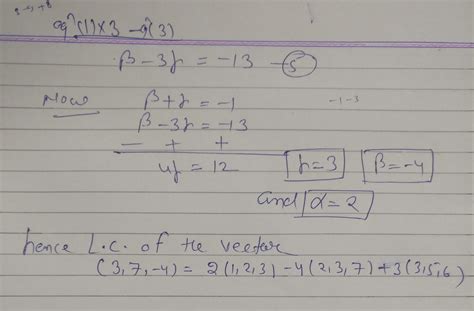 eqⁿ (1)×3 - eqⁿ(3)
β-3γ = -13 -⑤
Now β+γ = -1
-1-3
β-3γ = -13
- + +
4γ = 12 γ=3 β=-4
and α=2
hence L.C. of the vector
(3,7,-4) = 2(1,2,3) -4(2,3,7)+3(3,5,6)